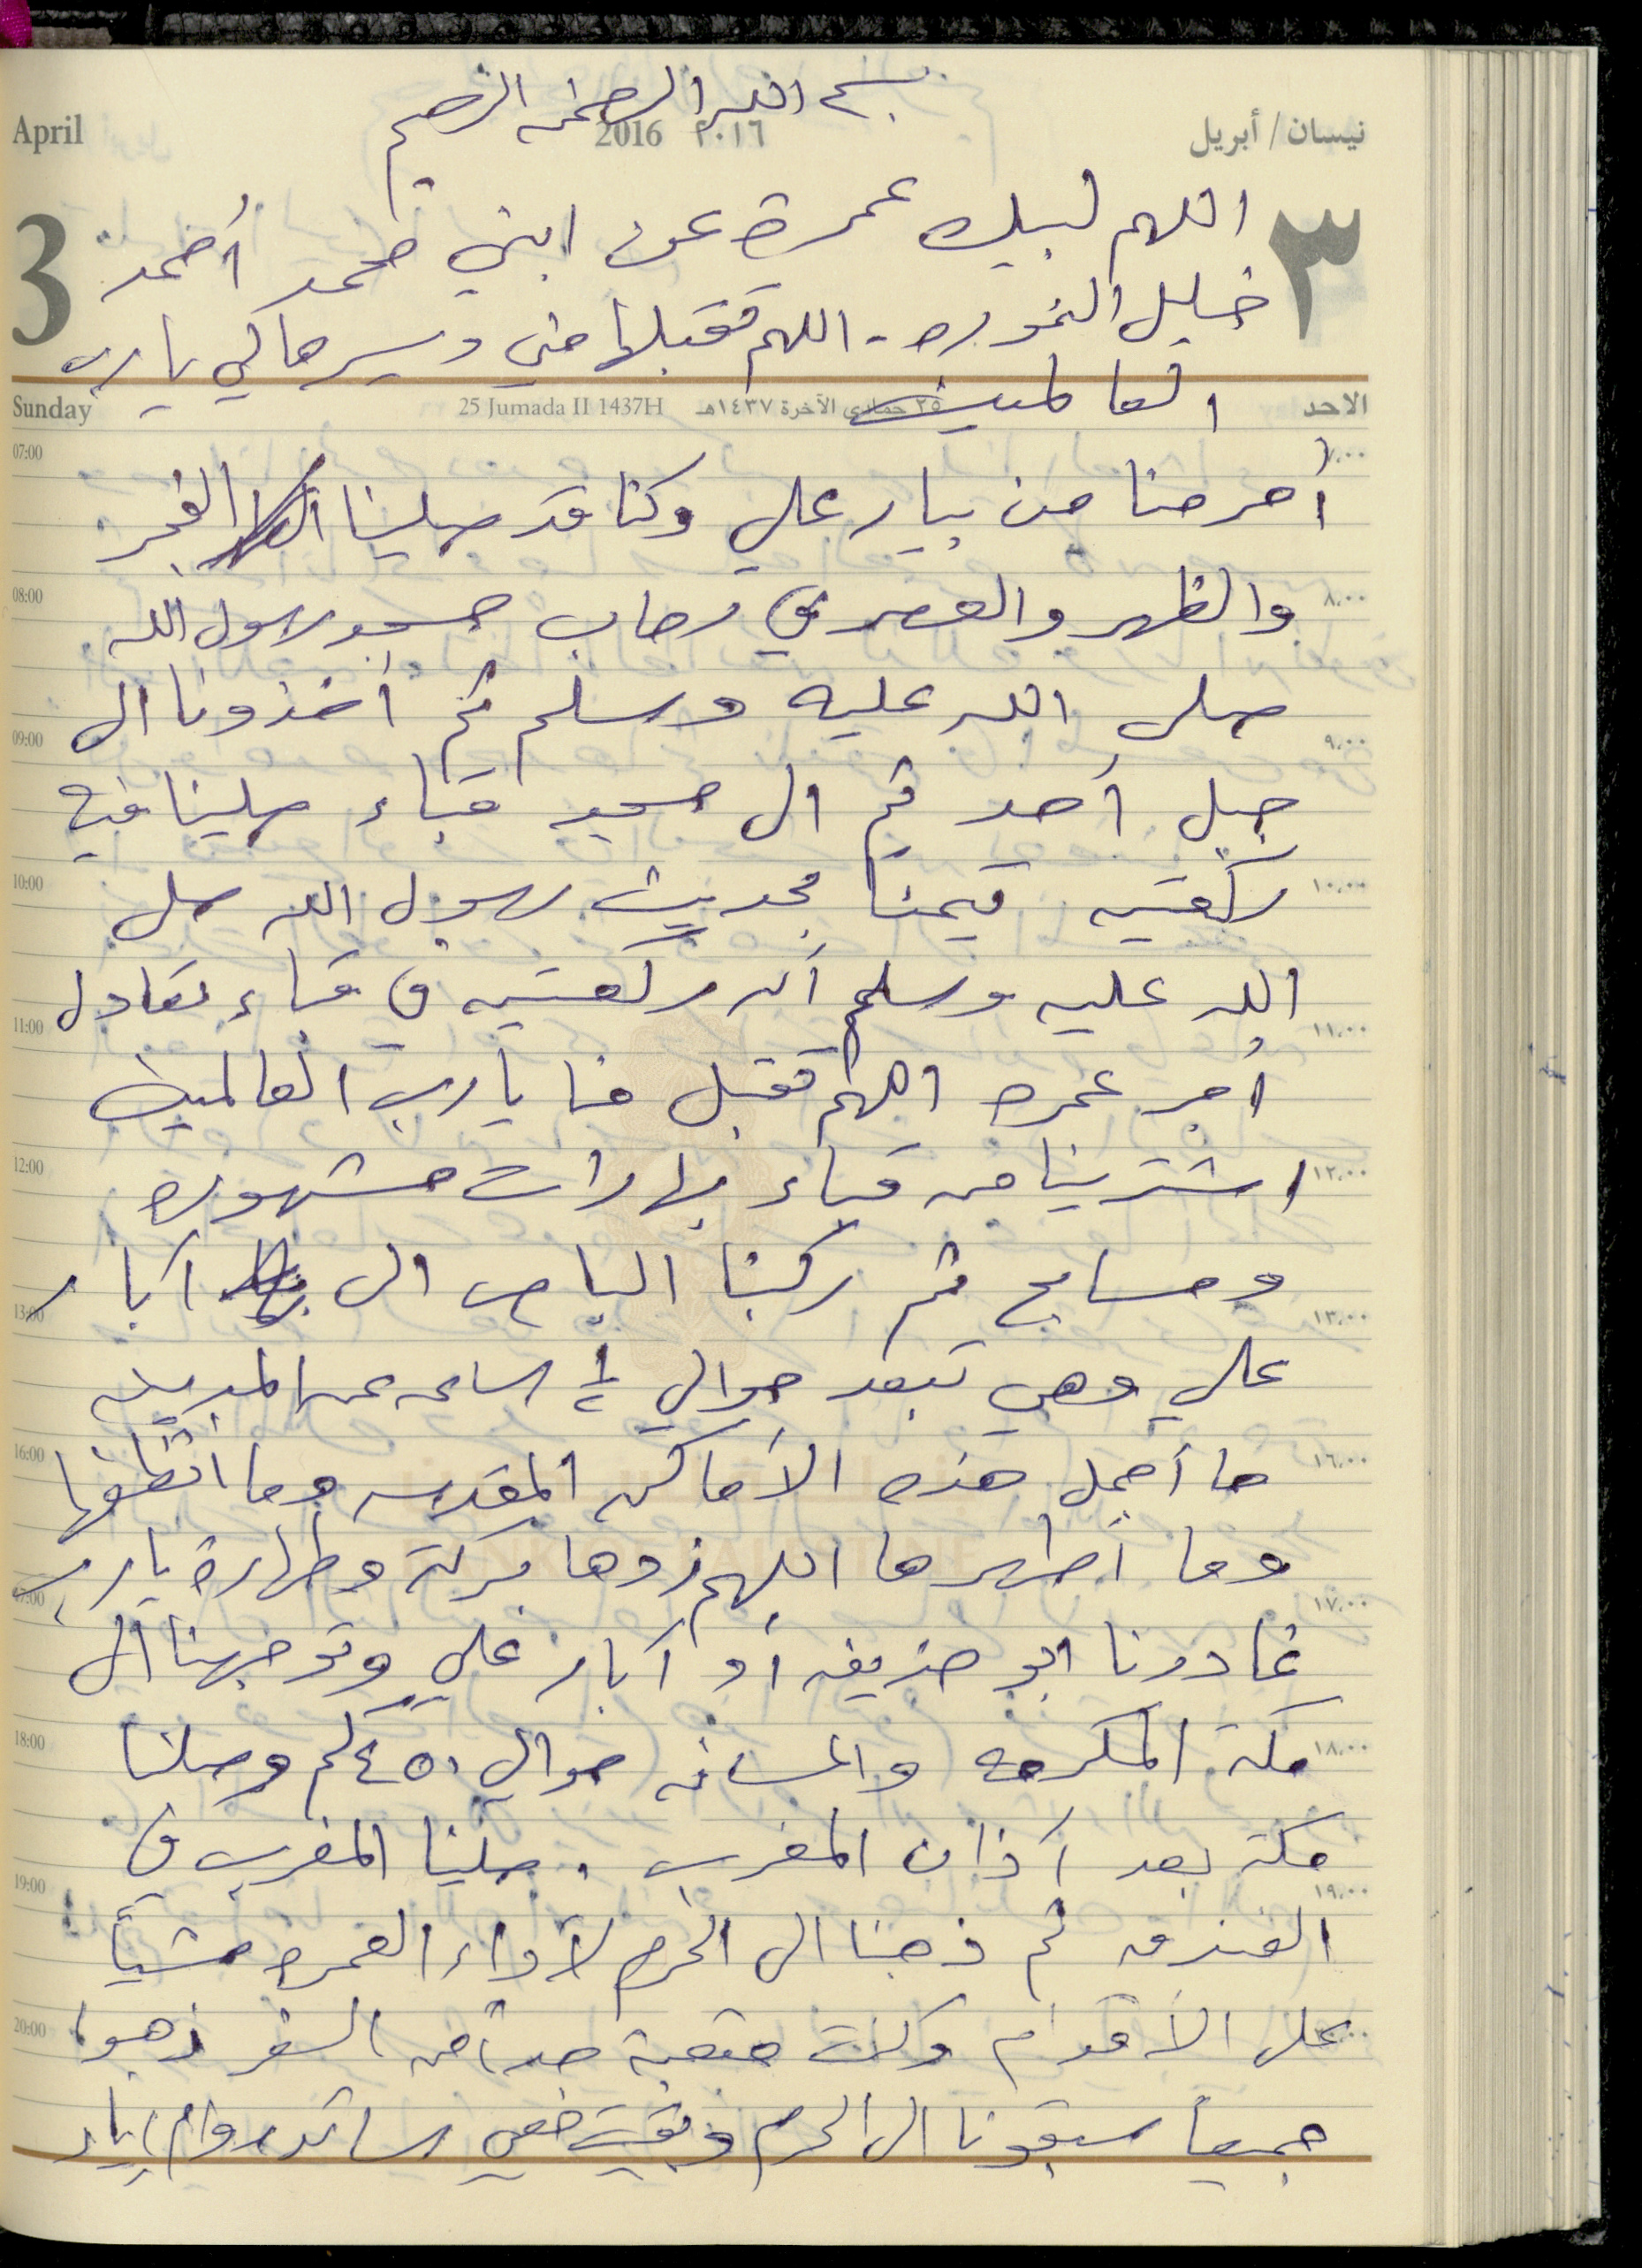 بسم الله الرحمن الرحيم
April 2016 ٢٠١٦ نيسان / أبريل
3 ٣
اللهم لبيك عمرة عن ابني محمد أحمد
خليل النموره - اللهم تقبلها مني ويسرها لي يا رب
العالمين
Sunday 25 Jumada II 1437H ٢٥ جمادى الآخرة ١٤٣٧هـ الاحد
07:00 ٧،٠٠
أحرمنا من بيار علي وكنا قد صلينا الفجر
08:00 ٨،٠٠
والظهر والعصر في رحاب مسجد رسول الله
صلى الله عليه وسلم ثم أخذونا الى
09:00 ٩،٠٠
جبل أحد ثم الى مسجد قباء صلينا فيه
10:00 ١٠،٠٠
ركعتين تيمنا بحديث رسول الله صلى
الله عليه وسلم أن ركعتين في قباء تعادل
11:00 ١١،٠٠
أجر عمره اللهم تقبل منا يا رب العالمين
12:00 ١٢،٠٠
اشترينا من قباء بهارات مشهوره
ومسابح ثم ركبنا الباص الى آبار
13:00 ١٣،٠٠
علي وهي تبعد حوالي ½ ساعه عن المدينه
16:00 ١٦،٠٠
ما أجمل هذه الأماكن المقدسه وما انظفها
وما أطهرها اللهم زدها بركة وطهارة يا رب
17:00 ١٧،٠٠
غادرنا ابو حذيفه أو آبار علي وتوجهنا الى
18:00 ١٨،٠٠
مكة المكرمه والمسافه حوالي ٤٥٠ كم وصلنا
مكة بعد آذان المغرب . صلينا المغرب في
19:00 ١٩،٠٠
الفندق ثم ذهبنا الى الحرم لآداء العمره مشياً
20:00
على الأقدام وكنت متعبة جداً من السفر ذهبوا
جميعاً سبقونا الى الحرم وبقيت معي